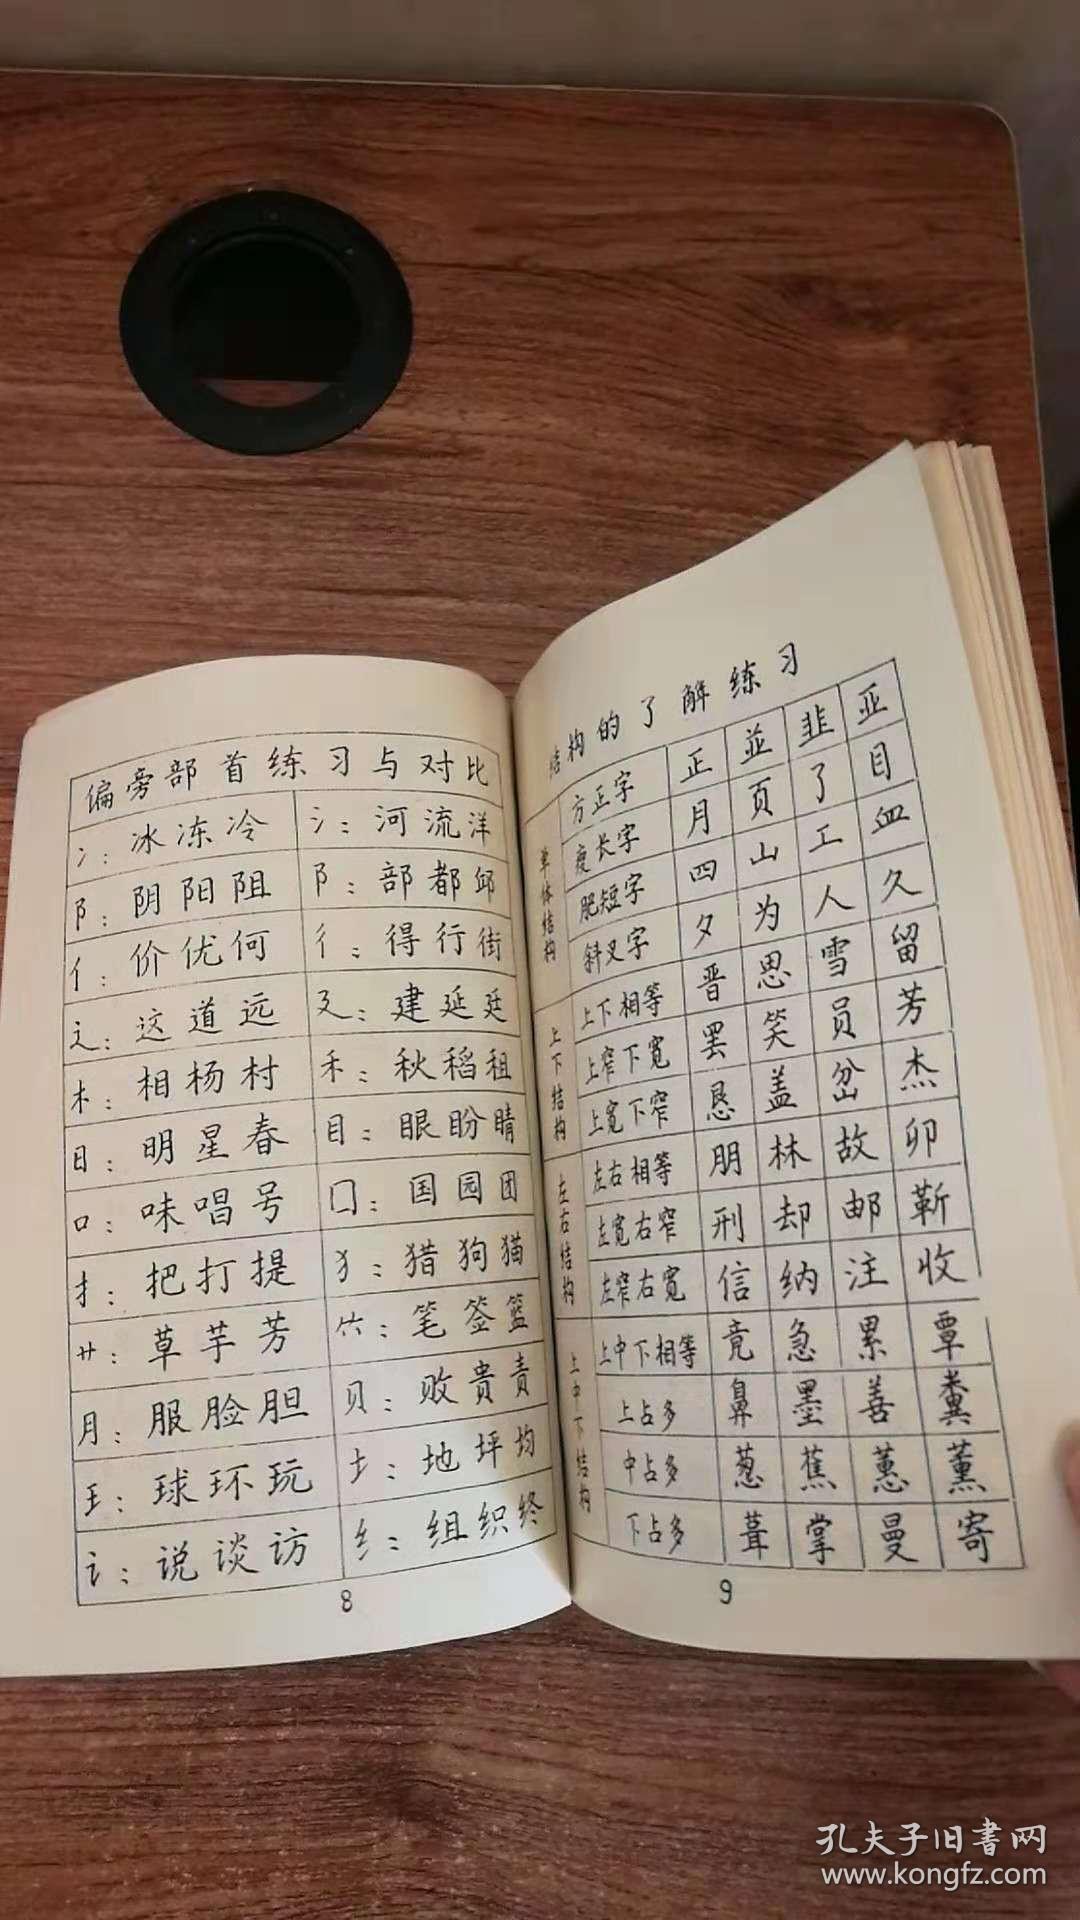 偏旁部首练习与对比
冫：冰冻冷 氵：河流洋
阝：阴阳阻 阝：部都邱
亻：价优何 彳：得行街
辶：这道远 廴：建延廷
木：相杨村 禾：秋稻租
日：明星春 目：眼盼睛
口：味唱号 囗：国园团
扌：把打提 犭：猎狗猫
艹：草芋芳 ⺮：笔签篮
月：服脸胆 贝：败贵责
王：球环玩 土：地坪均
讠：说谈访 纟：组织终
8
结构的了解练习
单体结构
方正字 正 並 韭 亚
瘦长字 月 页 了 目
肥短字 四 山 工 血
斜叉字 夕 为 人 久
上下结构
上下相等 晋 思 雪 留
上窄下宽 罢 笑 员 芳
上宽下窄 恳 盖 岔 杰
左右结构
左右相等 朋 林 故 卯
左宽右窄 刑 却 邮 靳
左窄右宽 信 纳 注 收
上中下结构
上中下相等 竟 急 累 覃
上占多 鼻 墨 善 粪
中占多 葱 蕉 蕙 薰
下占多 葺 掌 曼 寄
9
孔夫子旧书网
www.kongfz.com